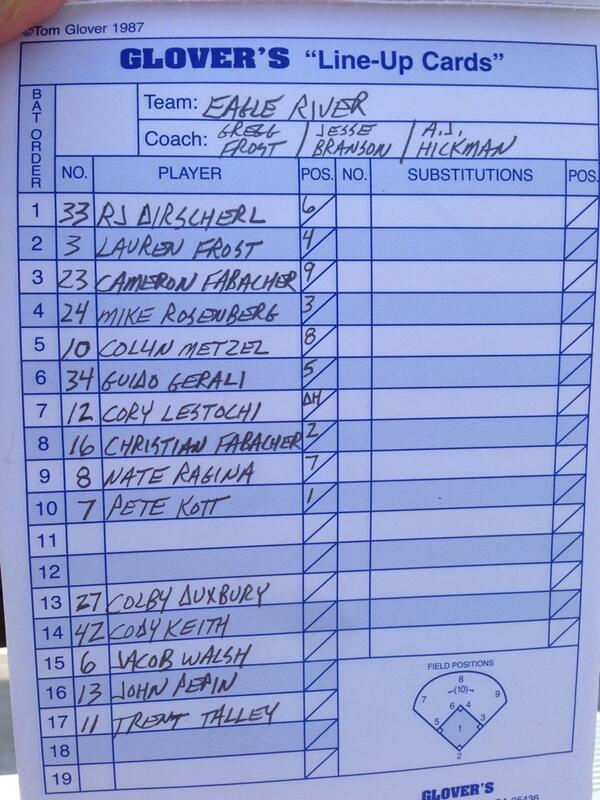 ©Tom Glover 1987
GLOVER'S "Line-Up Cards"
BAT ORDER
Team: EAGLE RIVER
Coach: GREGG FROST / JESSE BRANSON / A.J. HICKMAN
NO. PLAYER POS. NO. SUBSTITUTIONS POS.
1 33 RJ DIRSCHERL 6
2 3 LAUREN FROST 4
3 23 CAMERON FABACHER 9
4 24 MIKE ROSENBERG 3
5 10 COLLIN METZEL 8
6 34 GUIDO GERALI 5
7 12 CORY LESTOCHI DH
8 16 CHRISTIAN FABACHER 2
9 8 NATE RAGINA 7
10 7 PETE KOTT 1
11
12
13 27 COLBY DUXBURY
14 42 CODY KEITH
15 6 JACOB WALSH
16 13 JOHN PEPIN
17 11 TRENT TALLEY
18
19
FIELD POSITIONS
8
(10)
7 9
6 4
5 1 3
2
GLOVER'S
95436